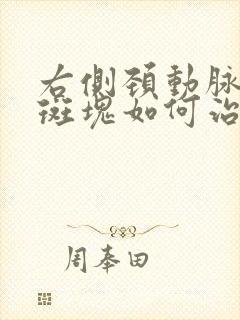 右側頚動脉
斑塊如何治
周奉田